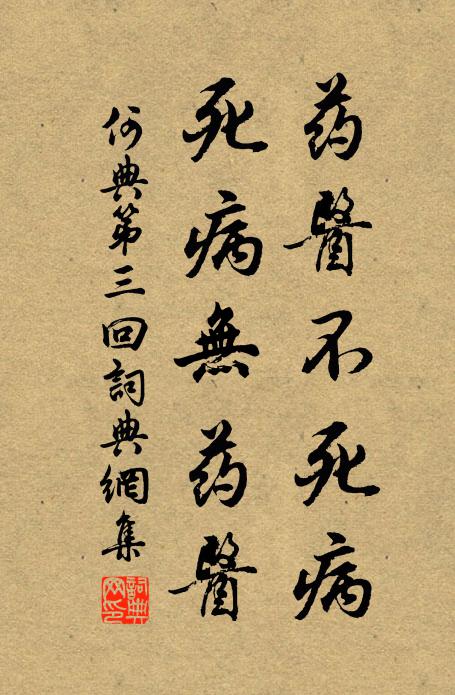 药醫不死病
死病無药醫
何典第三回詞典網集
詞典网印